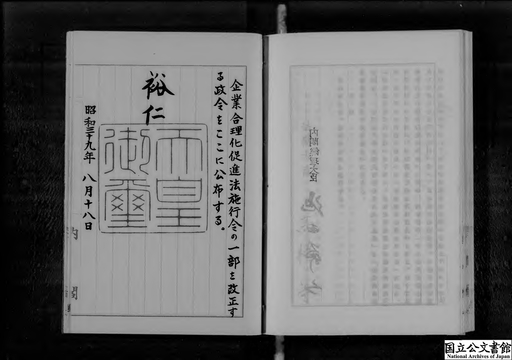 企業合理化促進法施行令の一部を改正す
る政令をここに公布する。
裕仁
天皇
御璽
昭和三十九年 八月十八日
内閣
国立公文書館
National Archives of Japan